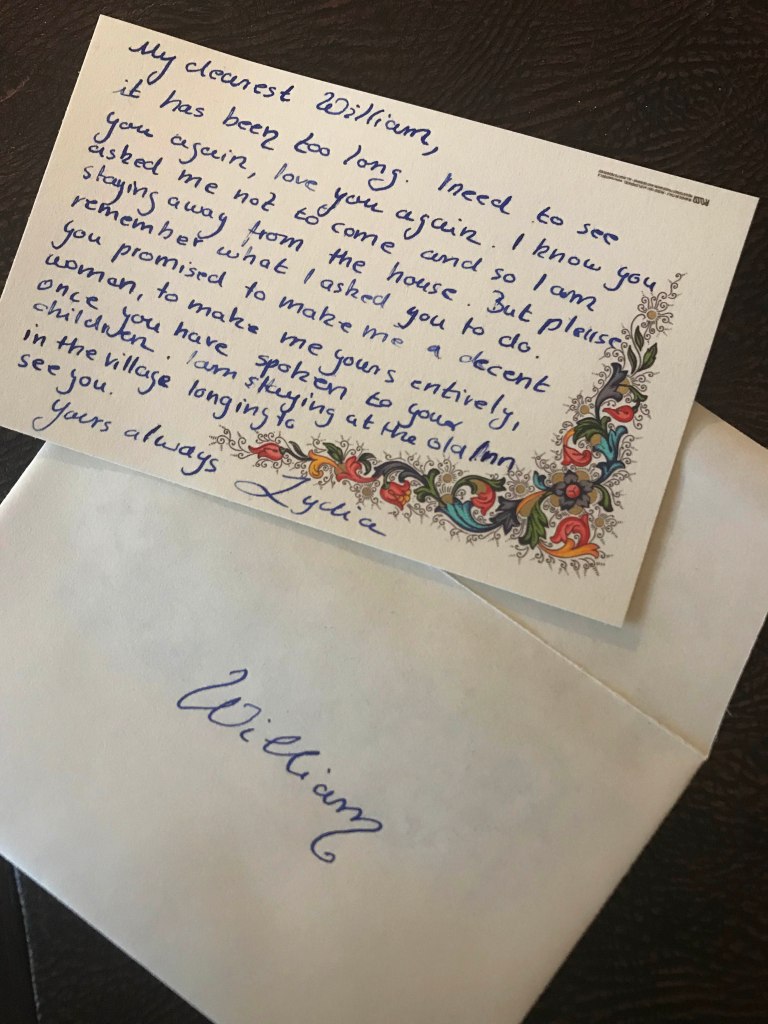 My dearest William,
it has been too long. I need to see
you again, love you again. I know you
asked me not to come and so I am
staying away from the house. But please
remember what I asked you to do.
you promised to make me a decent
woman, to make me yours entirely,
once you have spoken to your
children. I am staying at the old Inn
in the village longing to
see you.
Yours always
Lydia
William